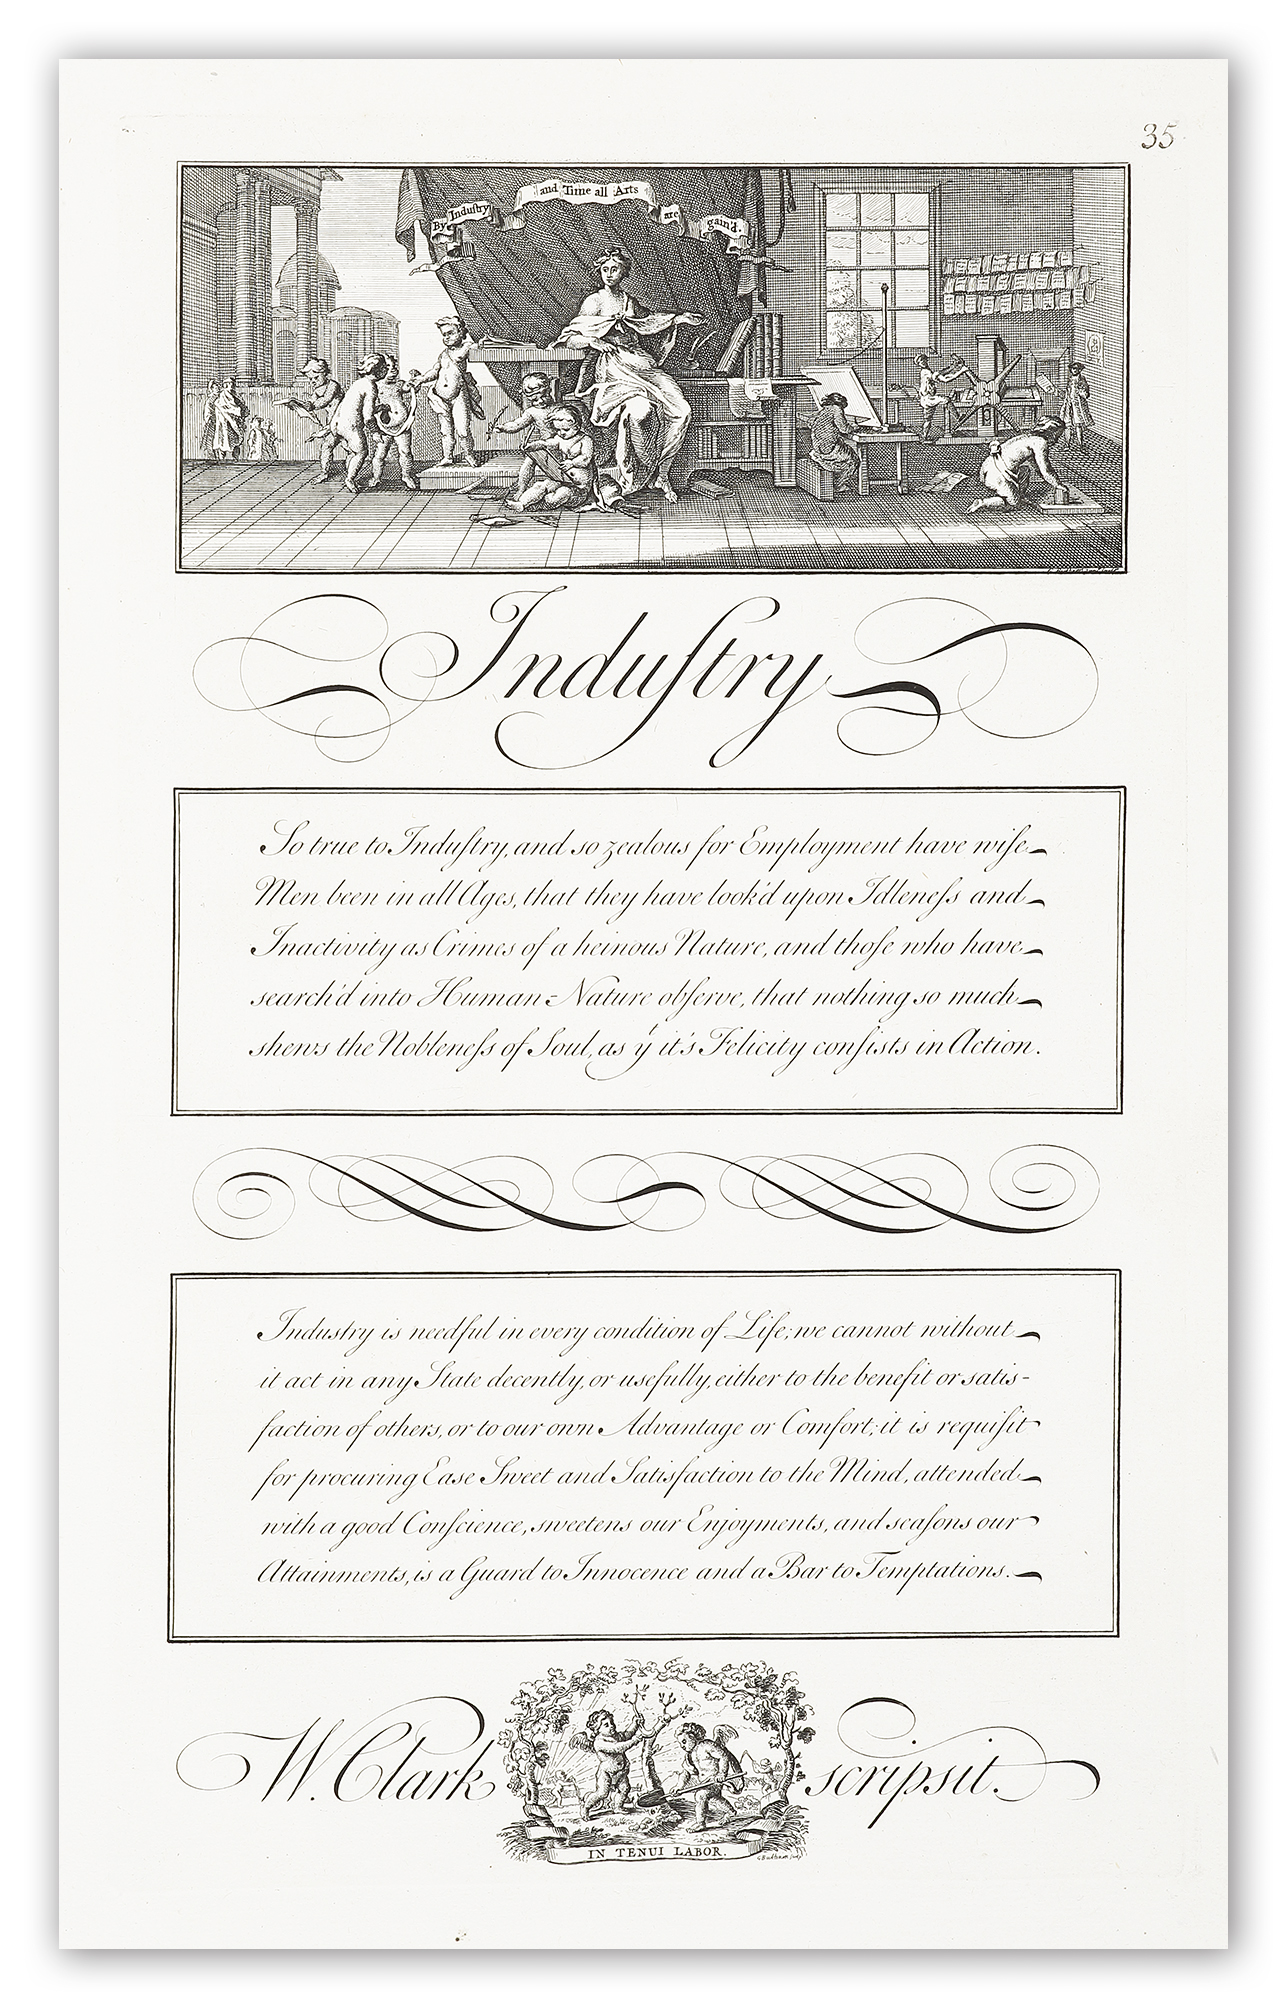 35
By Induſtry and Time all Arts are gain'd.
Induſtry
So true to Induſtry, and so zealous for Employment have wiſe
Men been in all Ages, that they have look'd upon Idleneſs and
Inactivity as Crimes of a heinous Nature, and thoſe who have
search'd into Human-Nature obſerve, that nothing so much
shews the Nobleneſs of Soul, as yͭ it's Felicity conſists in Action.
Industry is needful in every condition of Life; we cannot without
it act in any State decently, or uſefully, either to the benefit or satis-
faction of others, or to our own Advantage or Comfort; it is requiſit
for procuring Ease Sweet and Satisfaction to the Mind, attended
with a good Conſcience, sweetens our Enjoyments, and seaſons our
Attainments, is a Guard to Innocence and a Bar to Temptations.
W. Clark scripsit.
IN TENUI LABOR.
G Bickham sculp